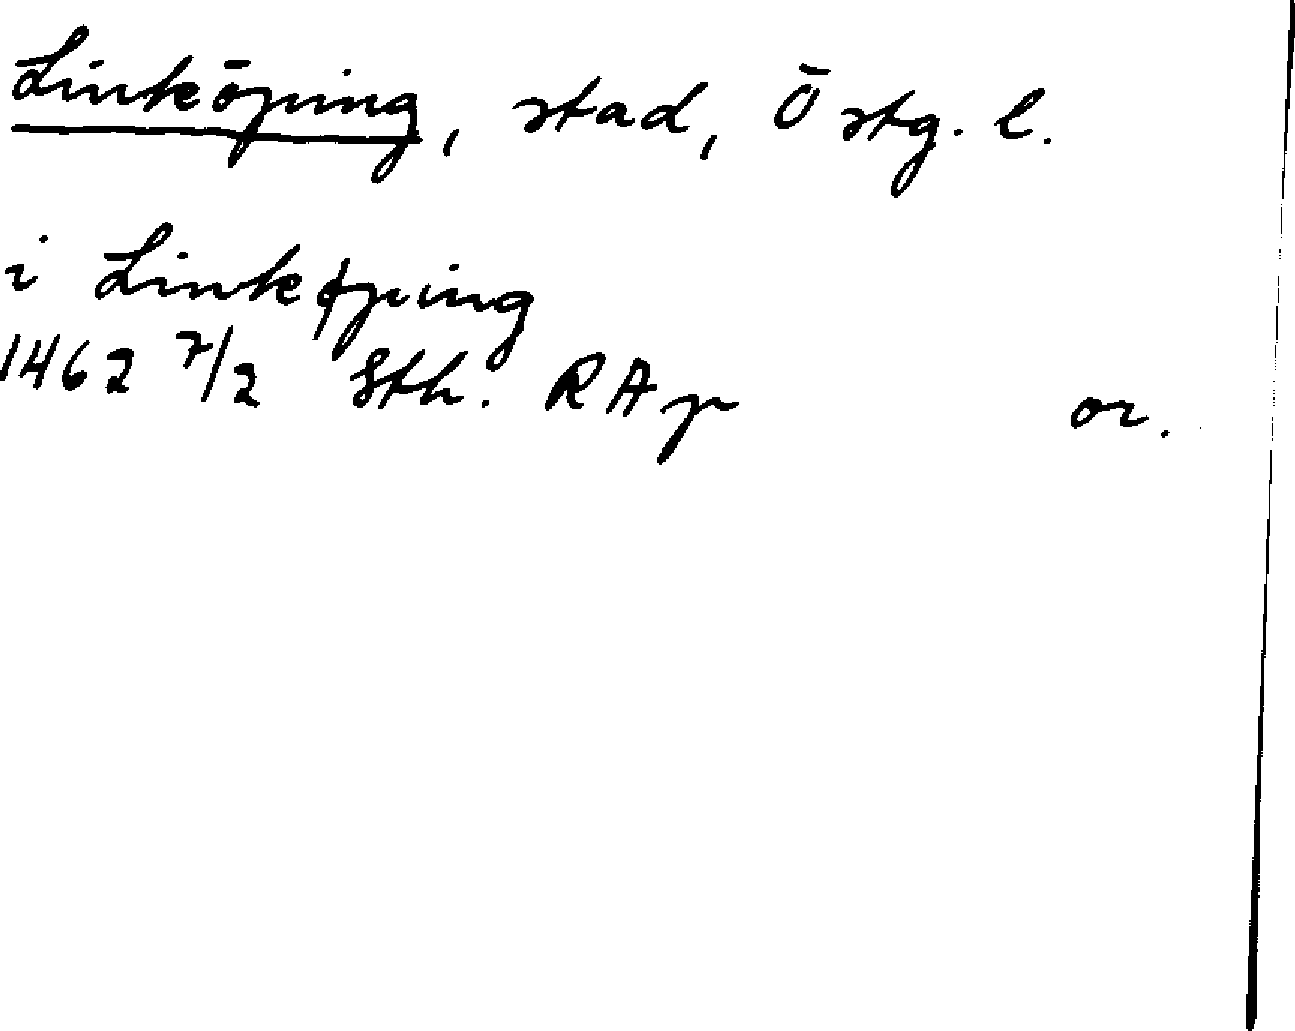 Linköping, stad, Östg. l.
i Linkøping
1462 7/2 Sth. RAp or.